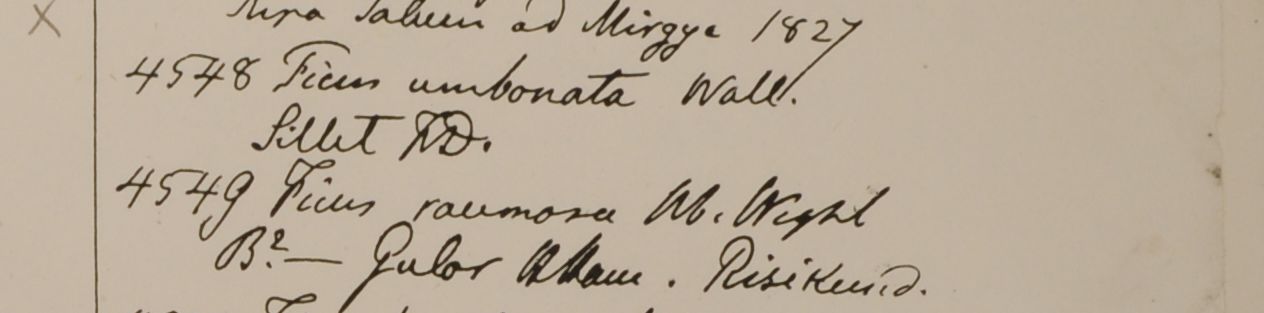 ad Mirgye 1827
4548 Ficus umbonata Wall.
Sillet FD.
4549 Ficus racemosa Hb. Wight
B? — Gulor . Risikund.